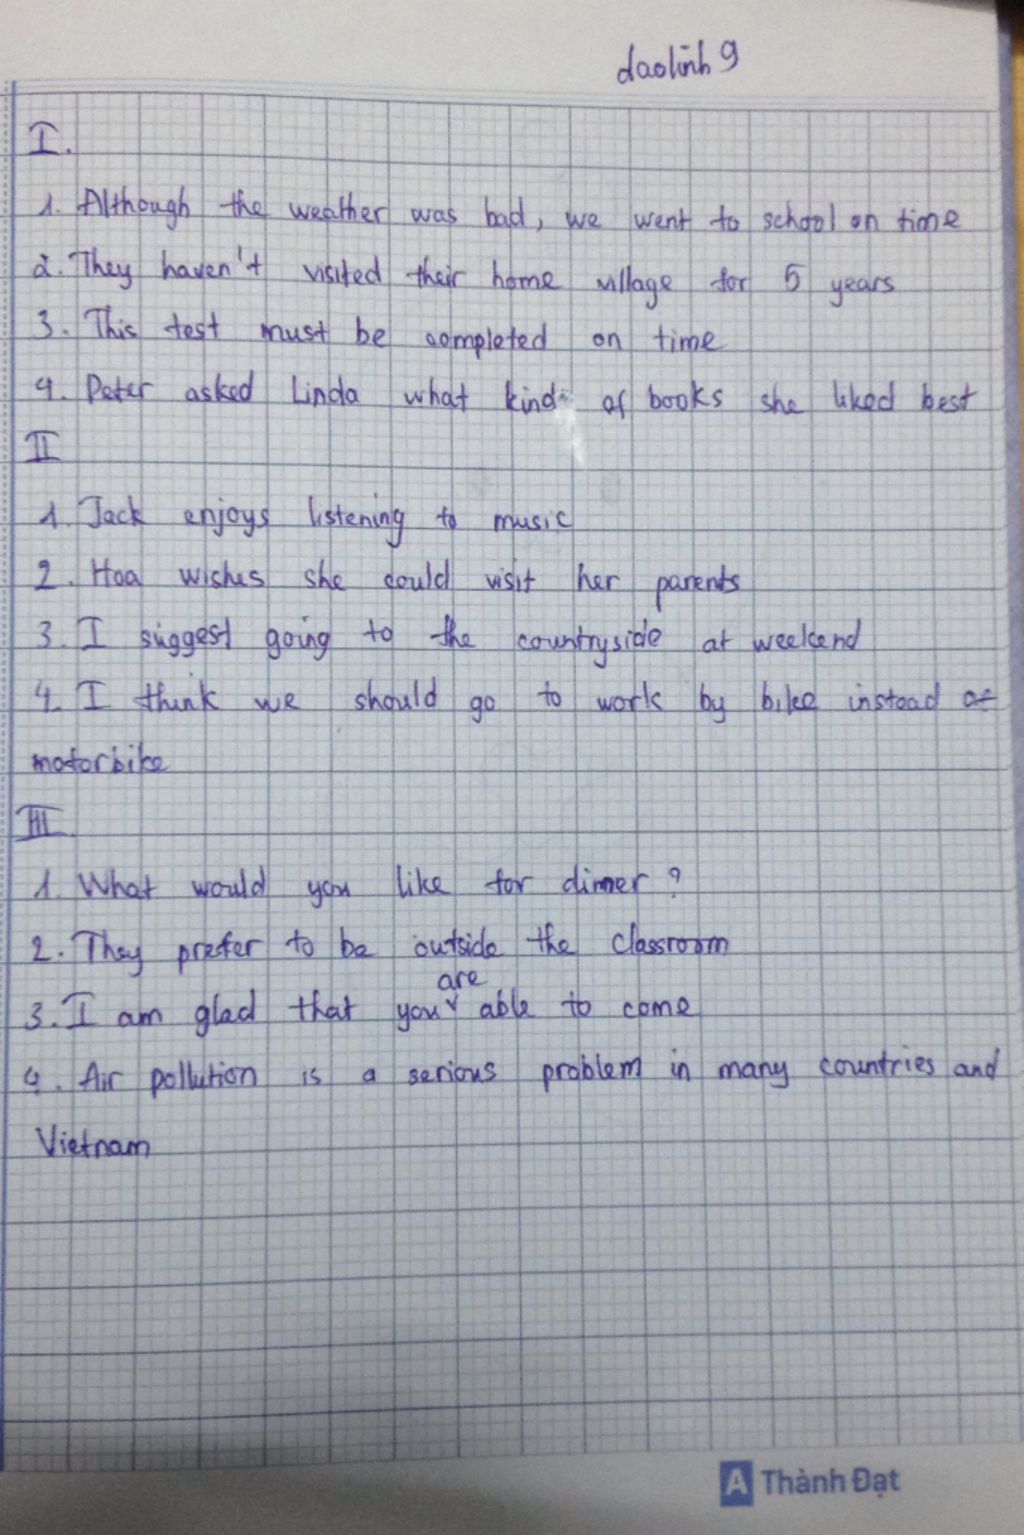 daolinh 9
I.
1. Although the weather was bad, we went to school on time
2. They haven't visited their home village for 5 years
3. This test must be completed on time
4. Peter asked Linda what kind of books she liked best
II
1. Jack enjoys listening to music
2. Hoa wishes she could visit her parents
3. I suggest going to the countryside at weekend
4. I think we should go to work by bike instead of
motorbike
III
1. What would you like for dinner ?
2. They prefer to be outside the classroom
are
3. I am glad that you able to come
4. Air pollution is a serious problem in many countries and
Vietnam
A Thành Đạt